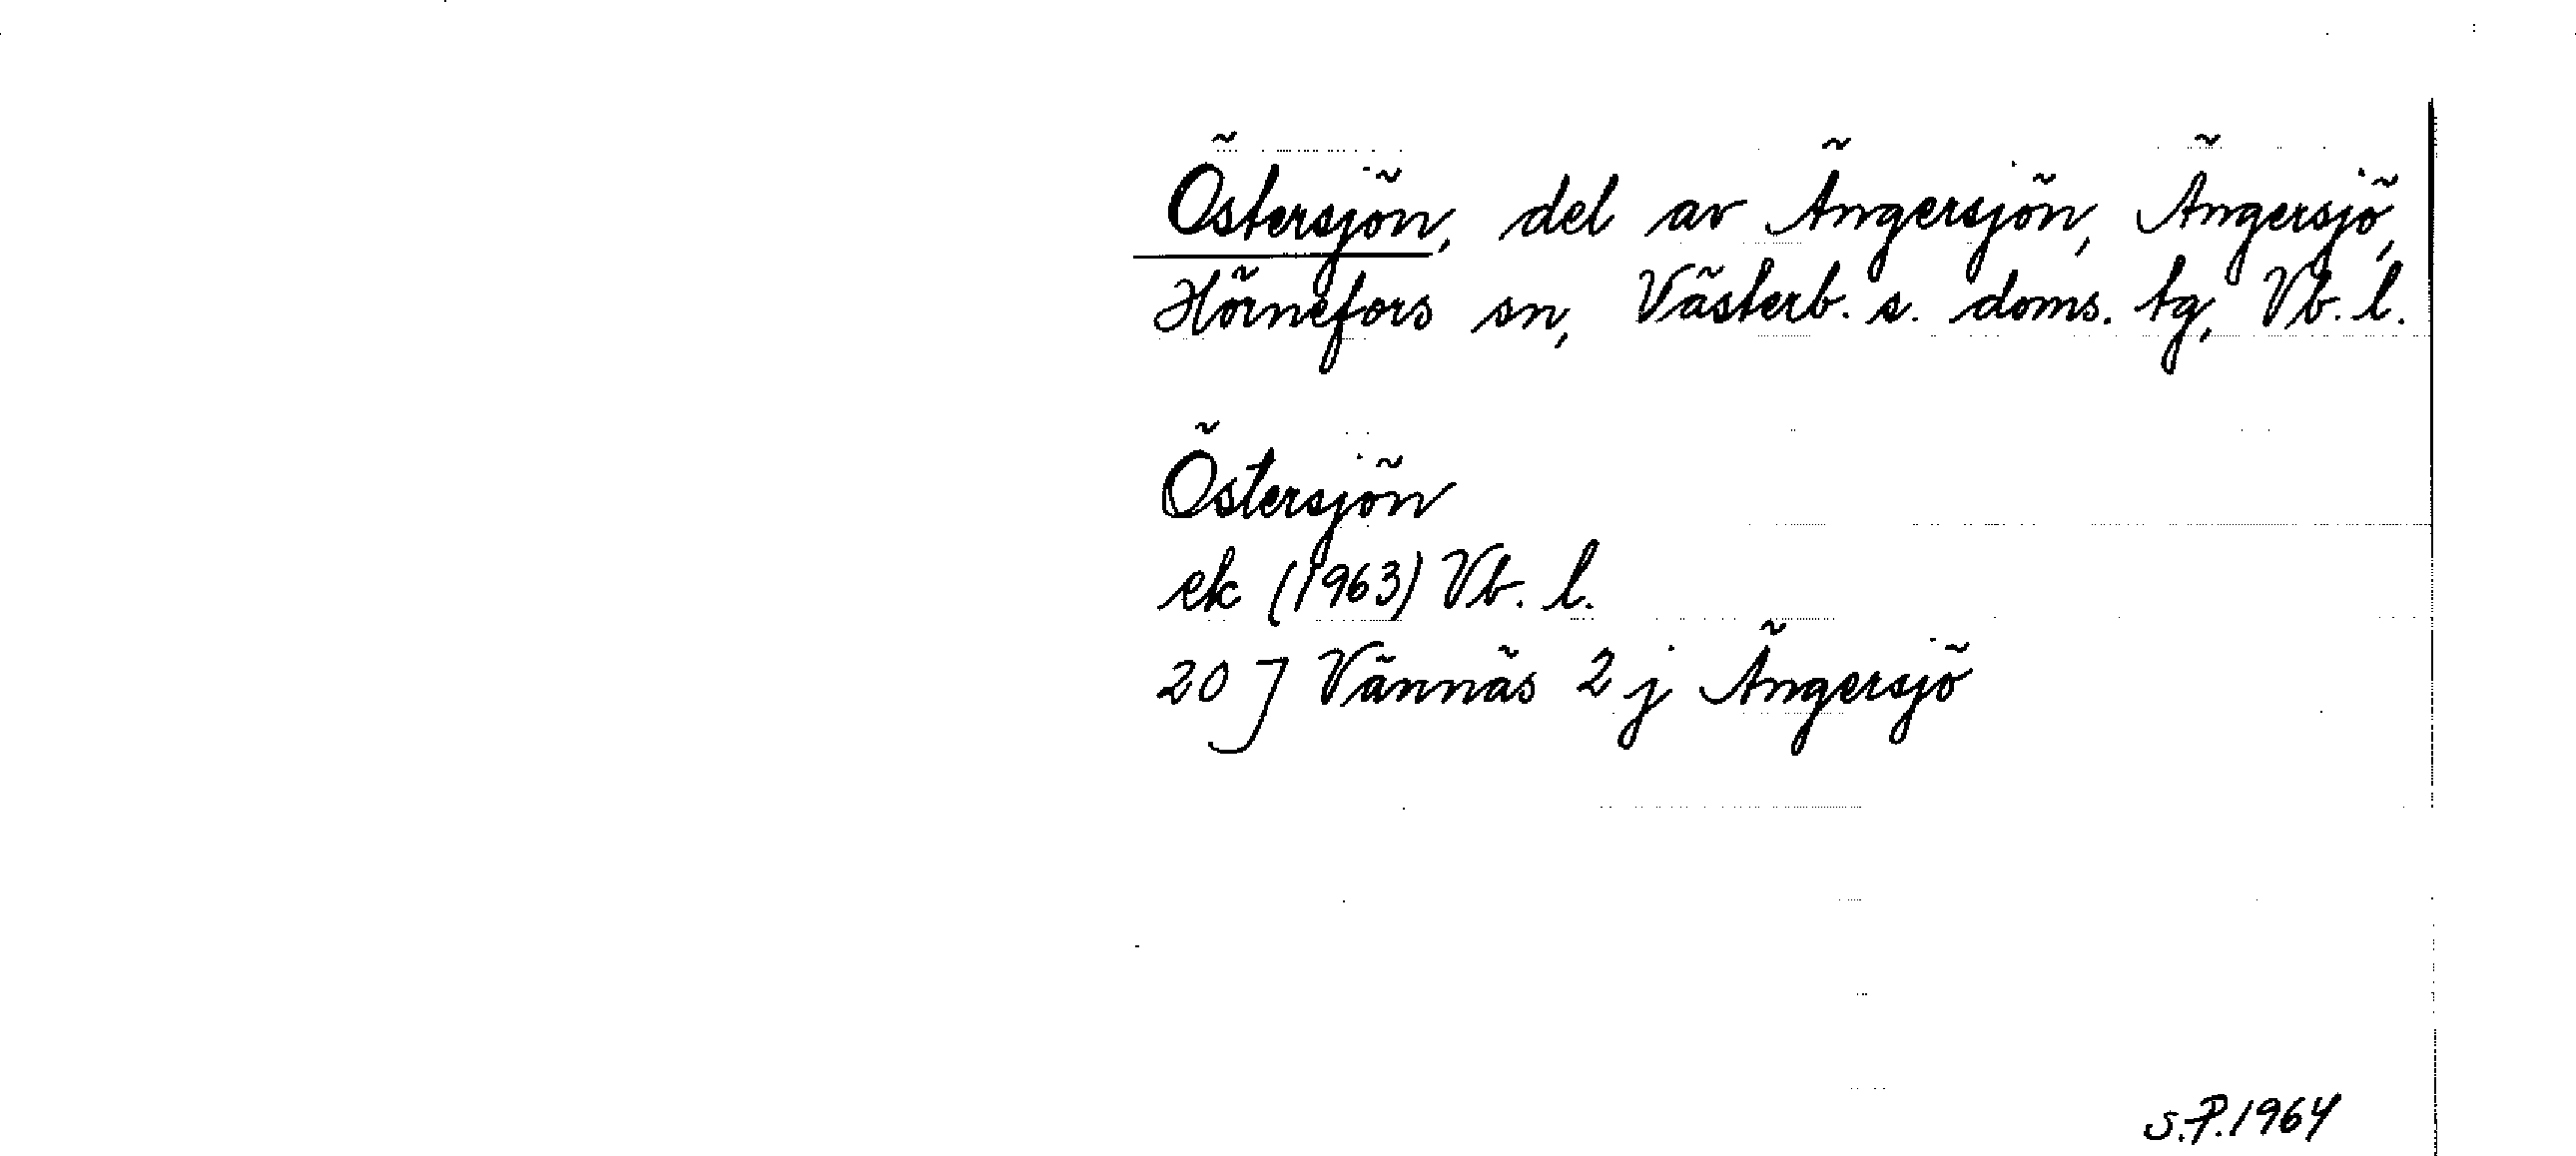 Östersjön, del av Ängersjön, Ängersjö,
Hörnefors sn, Västerb. s. doms. tg, Vb. l.
Östersjön
ek (1963) Vb. l.
20 J Vännäs 2 j Ängersjö
S.P. 1964